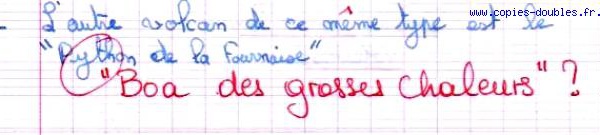 www.copies-doubles.fr.
- L'autre volcan de ce même type est le
"Python de la Fournaise"
"Boa des grosses chaleurs" ?